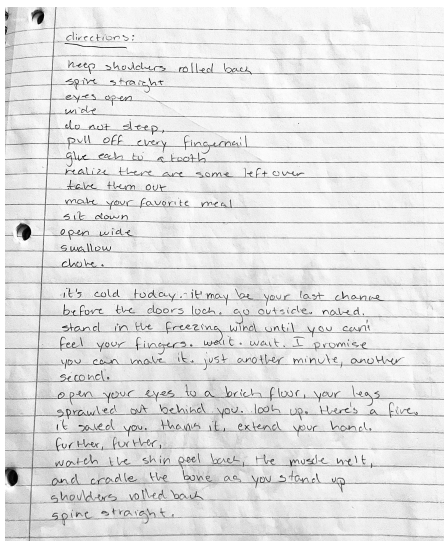 directions:
keep shoulders rolled back
spine straight
eyes open
wide
do not sleep,
pull off every fingernail
glue each to a tooth
realize there are some left over
take them out
make your favorite meal
sit down
open wide
swallow
choke.
it's cold today. it may be your last chance
before the doors lock. go outside. naked.
stand in the freezing wind until you can't
feel your fingers. wait. wait. I promise
you can make it. just another minute, another
second.
open your eyes to a brick floor, your legs
sprawled out behind you. look up. there's a fire.
it saved you. thank it, extend your hand.
further, further,
watch the skin peel back, the muscle melt,
and cradle the bone as you stand up
shoulders rolled back
spine straight.